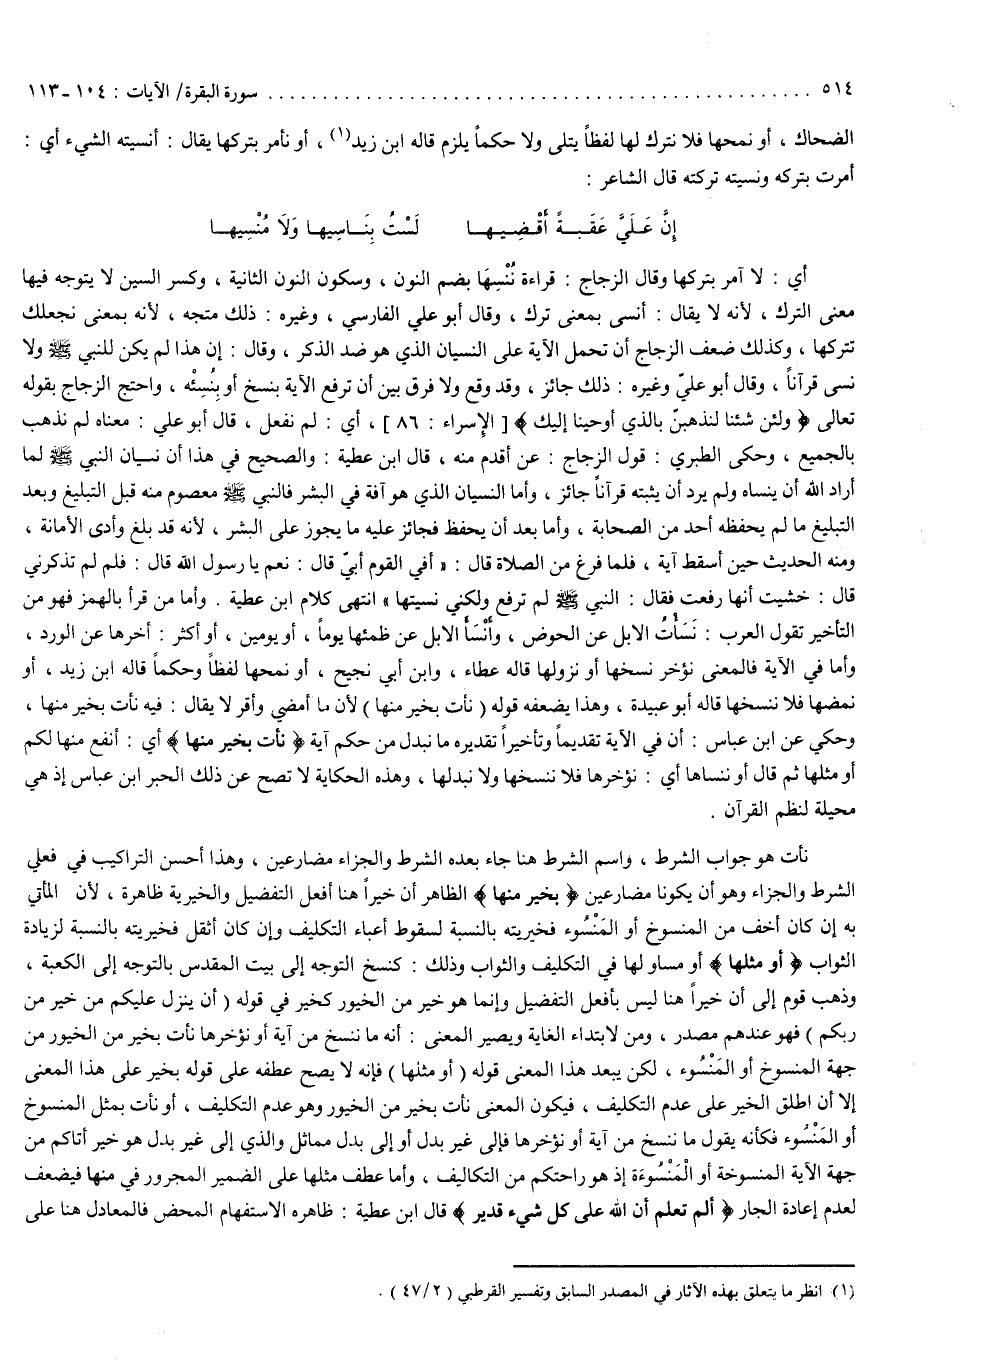 ٥١٤ ................................................ سورة البقرة/ الآيات : ١٠٤ ـ ١١٣
الضحاك ، أو نمحها فلا نترك لها لفظاً يتلى ولا حكماً يلزم قاله ابن زيد(١) ، أو نأمر بتركها يقال : أنسيته الشيء أي :
أمرت بتركه ونسيته تركته قال الشاعر :
إِنَّ عَلَيَّ عَقَبَـةً أَقْضِيـهـا لَسْتُ بِنَـاسِيهـا وَلَا مُنْسِيهـا
أي : لا آمر بتركها وقال الزجاج : قراءة نُنْسِهَا بضم النون ، وسكون النون الثانية ، وكسر السين لا يتوجه فيها
معنى الترك ، لأنه لا يقال : أنسى بمعنى ترك ، وقال أبو علي الفارسي ، وغيره : ذلك متجه ، لأنه بمعنى نجعلك
تتركها ، وكذلك ضعف الزجاج أن تحمل الآية على النسيان الذي هو ضد الذكر ، وقال : إن هذا لم يكن للنبي ﷺ ولا
نسى قرآناً ، وقال أبو عليّ وغيره : ذلك جائز ، وقد وقع ولا فرق بين أن ترفع الآية بنسخ أو بِنُسِئْه ، واحتج الزجاج بقوله
تعالى ﴿ ولئن شئنا لنذهبنّ بالذي أوحينا إليك ﴾ [ الإسراء : ٨٦ ] ، أي : لم نفعل ، قال أبو علي : معناه لم نذهب
بالجميع ، وحكى الطبري : قول الزجاج : عن أقدم منه ، قال ابن عطية : والصحيح في هذا أن نسيان النبي ﷺ لما
أراد الله أن ينساه ولم يرد أن يثبته قرآناً جائز ، وأما النسيان الذي هو آفة في البشر فالنبي ﷺ معصوم منه قبل التبليغ وبعد
التبليغ ما لم يحفظه أحد من الصحابة ، وأما بعد أن يحفظ فجائز عليه ما يجوز على البشر ، لأنه قد بلغ وأدى الأمانة ،
ومنه الحديث حين أسقط آية ، فلما فرغ من الصلاة قال : « أفي القوم أبيّ قال : نعم يا رسول الله قال : فلم لم تذكرني
قال : خشيت أنها رفعت فقال : النبي ﷺ لم ترفع ولكني نسيتها » انتهى كلام ابن عطية . وأما من قرأ بالهمز فهو من
التأخير تقول العرب : نَسَأْتُ الابل عن الحوض ، وأَنْسَأَ الابل عن ظمئها يوماً ، أو يومين ، أو أكثر : أخرها عن الورد ،
وأما في الآية فالمعنى نؤخر نسخها أو نزولها قاله عطاء ، وابن أبي نجيح ، أو نمحها لفظاً وحكماً قاله ابن زيد ، أو
نمضها فلا ننسخها قاله أبو عبيدة ، وهذا يضعفه قوله ( نأت بخير منها ) لأن ما أمضي وأقر لا يقال : فيه نأت بخير منها ،
وحكي عن ابن عباس : أن في الآية تقديماً وتأخيراً تقديره ما نبدل من حكم آية ﴿ نأت بخير منها ﴾ أي : أنفع منها لكم
أو مثلها ثم قال أو ننساها أي : نؤخرها فلا ننسخها ولا نبدلها ، وهذه الحكاية لا تصح عن ذلك الحبر ابن عباس إذ هي
محيلة لنظم القرآن .
نأت هو جواب الشرط ، واسم الشرط هنا جاء بعده الشرط والجزاء مضارعين ، وهذا أحسن التراكيب في فعلي
الشرط والجزاء وهو أن يكونا مضارعين ﴿ بخير منها ﴾ الظاهر أن خيراً هنا أفعل التفضيل والخيرية ظاهرة ، لأن المأتي
به إن كان أخف من المنسوخ أو المَنْسُوء فخيريته بالنسبة لسقوط أعباء التكليف وإن كان أثقل فخيريته بالنسبة لزيادة
الثواب ﴿ أو مثلها ﴾ أو مساو لها في التكليف والثواب وذلك : كنسخ التوجه إلى بيت المقدس بالتوجه إلى الكعبة ،
وذهب قوم إلى أن خيراً هنا ليس بأفعل التفضيل وإنما هو خير من الخيور كخير في قوله ( أن ينزل عليكم من خير من
ربكم ) فهو عندهم مصدر ، ومن لابتداء الغاية ويصير المعنى : أنه ما ننسخ من آية أو نؤخرها نأت بخير من الخيور من
جهة المنسوخ أو المَنْسُوء ، لكن يبعد هذا المعنى قوله ( أو مثلها ) فإنه لا يصح عطفه على قوله بخير على هذا المعنى
إلا أن اطلق الخير على عدم التكليف ، فيكون المعنى نأت بخير من الخيور وهو عدم التكليف ، أو نأت بمثل المنسوخ
أو المَنْسُوء فكأنه يقول ما ننسخ من آية أو نؤخرها فإلى غير بدل أو إلى بدل مماثل والذي إلى غير بدل هو خير أتاكم من
جهة الآية المنسوخة أو الْمَنْسُوءَة إذ هو راحتكم من التكاليف ، وأما عطف مثلها على الضمير المجرور في منها فيضعف
لعدم إعادة الجار ﴿ ألم تعلم أن الله على كل شيء قدير ﴾ قال ابن عطية : ظاهره الاستفهام المحض فالمعادل هنا على
(١) انظر ما يتعلق بهذه الآثار في المصدر السابق وتفسير القرطبي ( ٤٧/٢ ) .